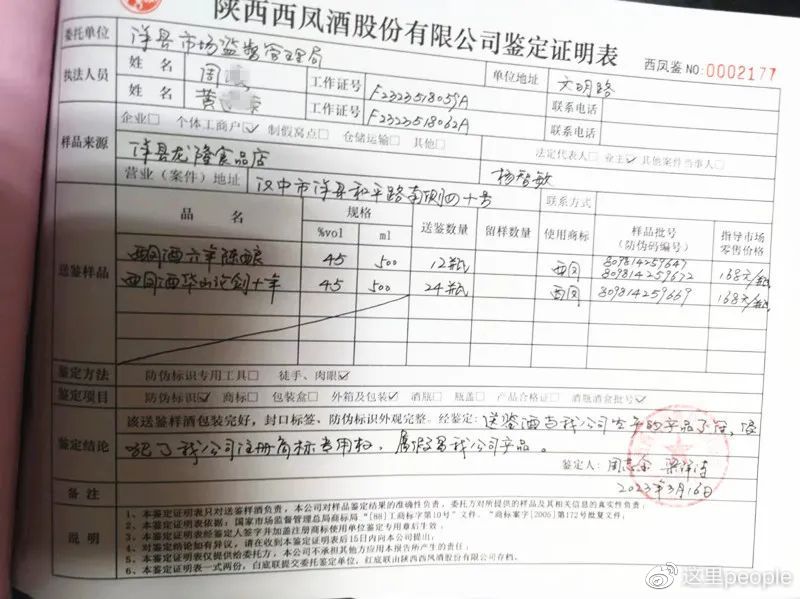 陕西西凤酒股份有限公司鉴定证明表
西凤鉴NO:0002177
委托单位 洋县市场监督管理局 单位地址 文明路
执法人员 姓名 周 工作证号 F2323518059A 联系电话
姓名 黄 工作证号 F2323518062A 联系电话
样品来源 企业□ 个体工商户☑ 制假窝点□ 仓储运输□ 其他□ 法定代表人□ 业主☑ 其他案件当事人□
洋县龙隆食品店 杨智敏
营业(案件)地址 汉中市洋县和平路南侧四十号 联系方式
送鉴样品 品名 规格 送鉴数量 留样数量 使用商标 样品批号 指导市场
%vol ml (防伪码编号) 零售价格
西凤酒六年陈酿 45 500 12瓶 西凤 809814259647 809814259672 168元/瓶
西凤酒华山论剑十年 45 500 24瓶 西凤 809814259669 168元/瓶
鉴定方法 防伪标识专用工具□ 徒手、肉眼☑
鉴定项目 防伪标识☑ 商标□ 包装盒□ 外箱及包装☑ 酒瓶□ 瓶盖□ 产品合格证□ 酒瓶酒盒批号☑
鉴定结论 该送鉴样酒包装完好,封口标签、防伪标识外观完整。经鉴定:送鉴酒与我公司生产的产品不符,侵
犯了我公司注册商标专用权,属假冒我公司产品。
鉴定人:周志全
2023年3月16日
备注
说明
1、本鉴定证明表只对送鉴样酒负责,本公司对样品鉴定结果的准确性负责,委托方对所提供的样品及其相关信息的真实性负责;
2、本鉴定证明表依据:国家市场监督管理总局商标局“[88]工商标字第10号”文件、“商标案字[2005]第172号批复文件。
3、本鉴定证明表经鉴定人签字并加盖注册商标使用单位鉴定专用章后生效;
4、对鉴定结论如有异议,请在收到本鉴定证明表后15日内向本公司提出;
5、本鉴定证明表仅提供给委托方,本公司不承担其他方应用本报告所产生的责任;
6、本鉴定证明表一式两份,白底联提交委托鉴定单位,红底联由陕西西凤酒股份有限公司存档。
@这里people